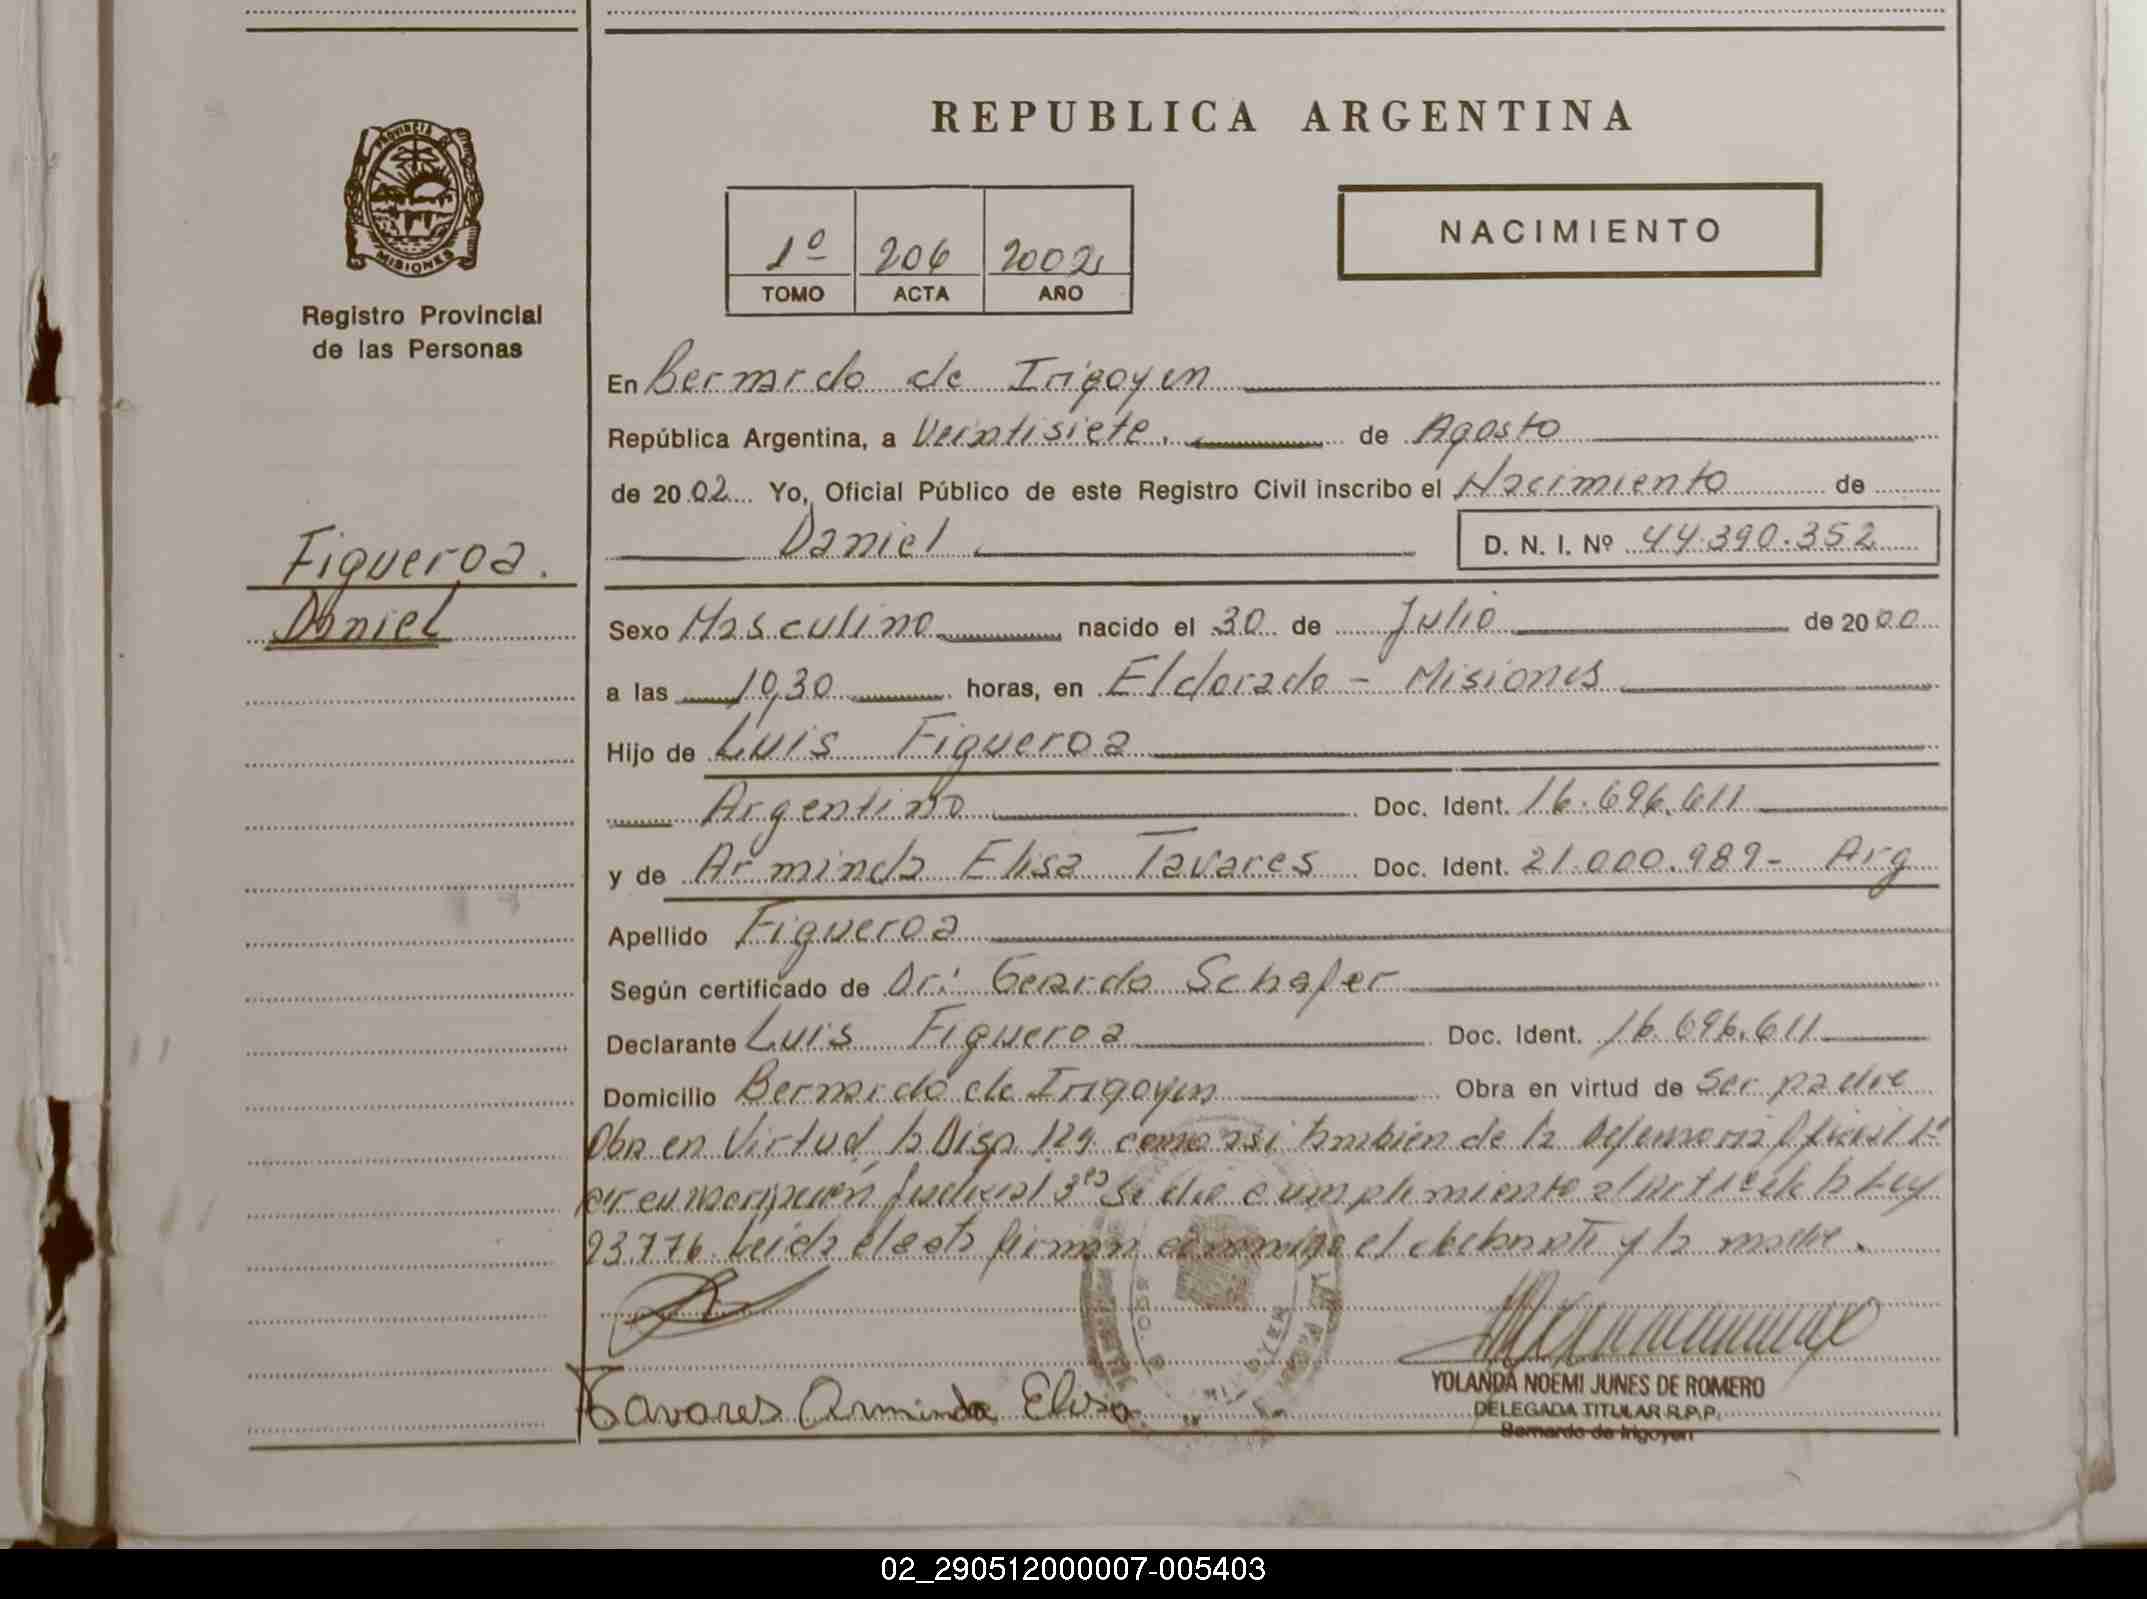 REPUBLICA ARGENTINA
PROVINCIA
MISIONES
Registro Provincial
de las Personas
1º 206 2002
TOMO ACTA AÑO
NACIMIENTO
Figueroa.
Daniel
En Bernardo de Irigoyen
República Argentina, a Veintisiete. de Agosto
de 2002 Yo, Oficial Público de este Registro Civil inscribo el Nacimiento de
Daniel D. N. I. Nº 44.390.352
Sexo Masculino nacido el 30 de Julio de 2000
a las 10,30 horas, en Eldorado - Misiones
Hijo de Luis Figueroa
Argentino Doc. Ident. 16.696.611
y de Arminda Elisa Tavares Doc. Ident. 21.000.989- Arg
Apellido Figueroa
Según certificado de Dr: Gerardo Schafer
Declarante Luis Figueroa Doc. Ident. 16.696.611
Domicilio Bernardo de Irigoyen Obra en virtud de Ser padre
Obra en Virtud la Disp. 129 como asi también de la Defensoria Oficial 1ª
Judicial 3ra Se dio cumplimiento al la Ley
23.776. Leida el acta firman conmigo el y la madre.
Tavares Arminda Elisa
YOLANDA NOEMI JUNES DE ROMERO
DELEGADA TITULAR R.P.P.
Bernardo de Irigoyen
02_290512000007-005403